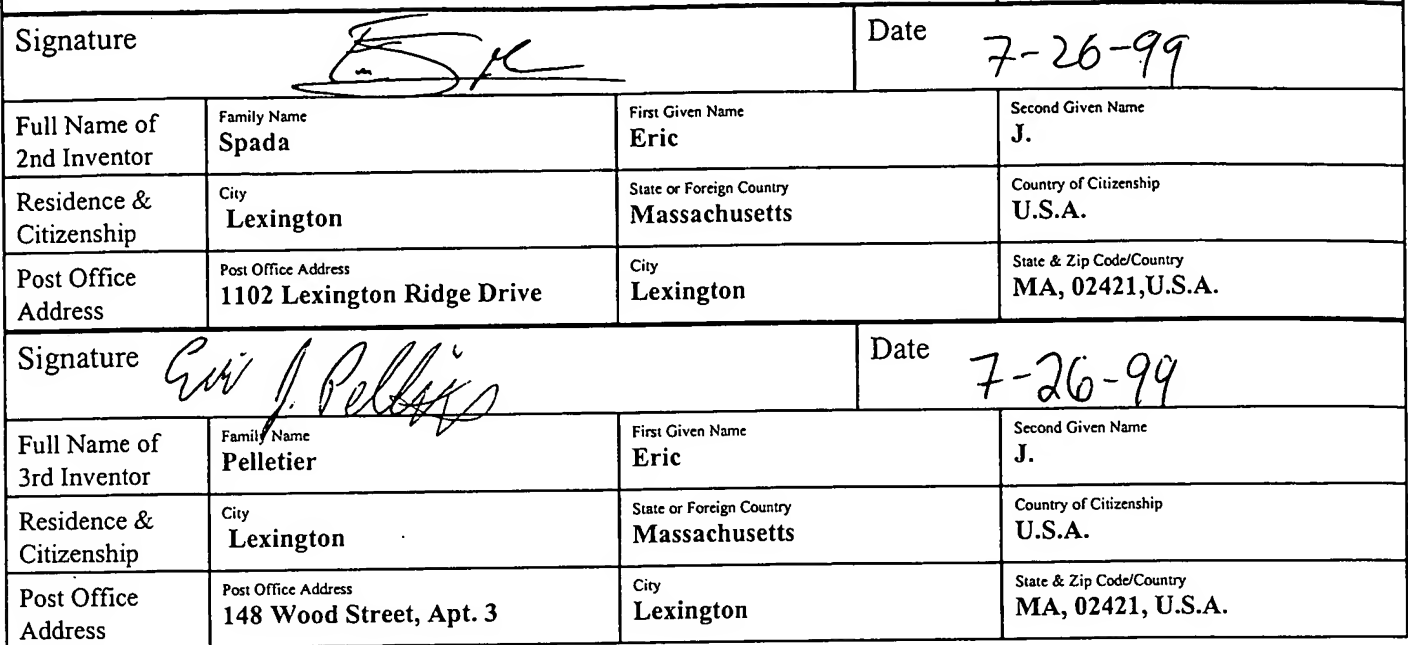 Signature Date 7-26-99
Full Name of 2nd Inventor Family Name Spada First Given Name Eric Second Given Name J.
Residence & Citizenship City Lexington State or Foreign Country Massachusetts Country of Citizenship U.S.A.
Post Office Address Post Office Address 1102 Lexington Ridge Drive City Lexington State & Zip Code/Country MA, 02421,U.S.A.
Signature Eric J. Pelletier Date 7-26-99
Full Name of 3rd Inventor Family Name Pelletier First Given Name Eric Second Given Name J.
Residence & Citizenship City Lexington State or Foreign Country Massachusetts Country of Citizenship U.S.A.
Post Office Address Post Office Address 148 Wood Street, Apt. 3 City Lexington State & Zip Code/Country MA, 02421, U.S.A.